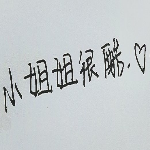 小姐姐很酷.♡